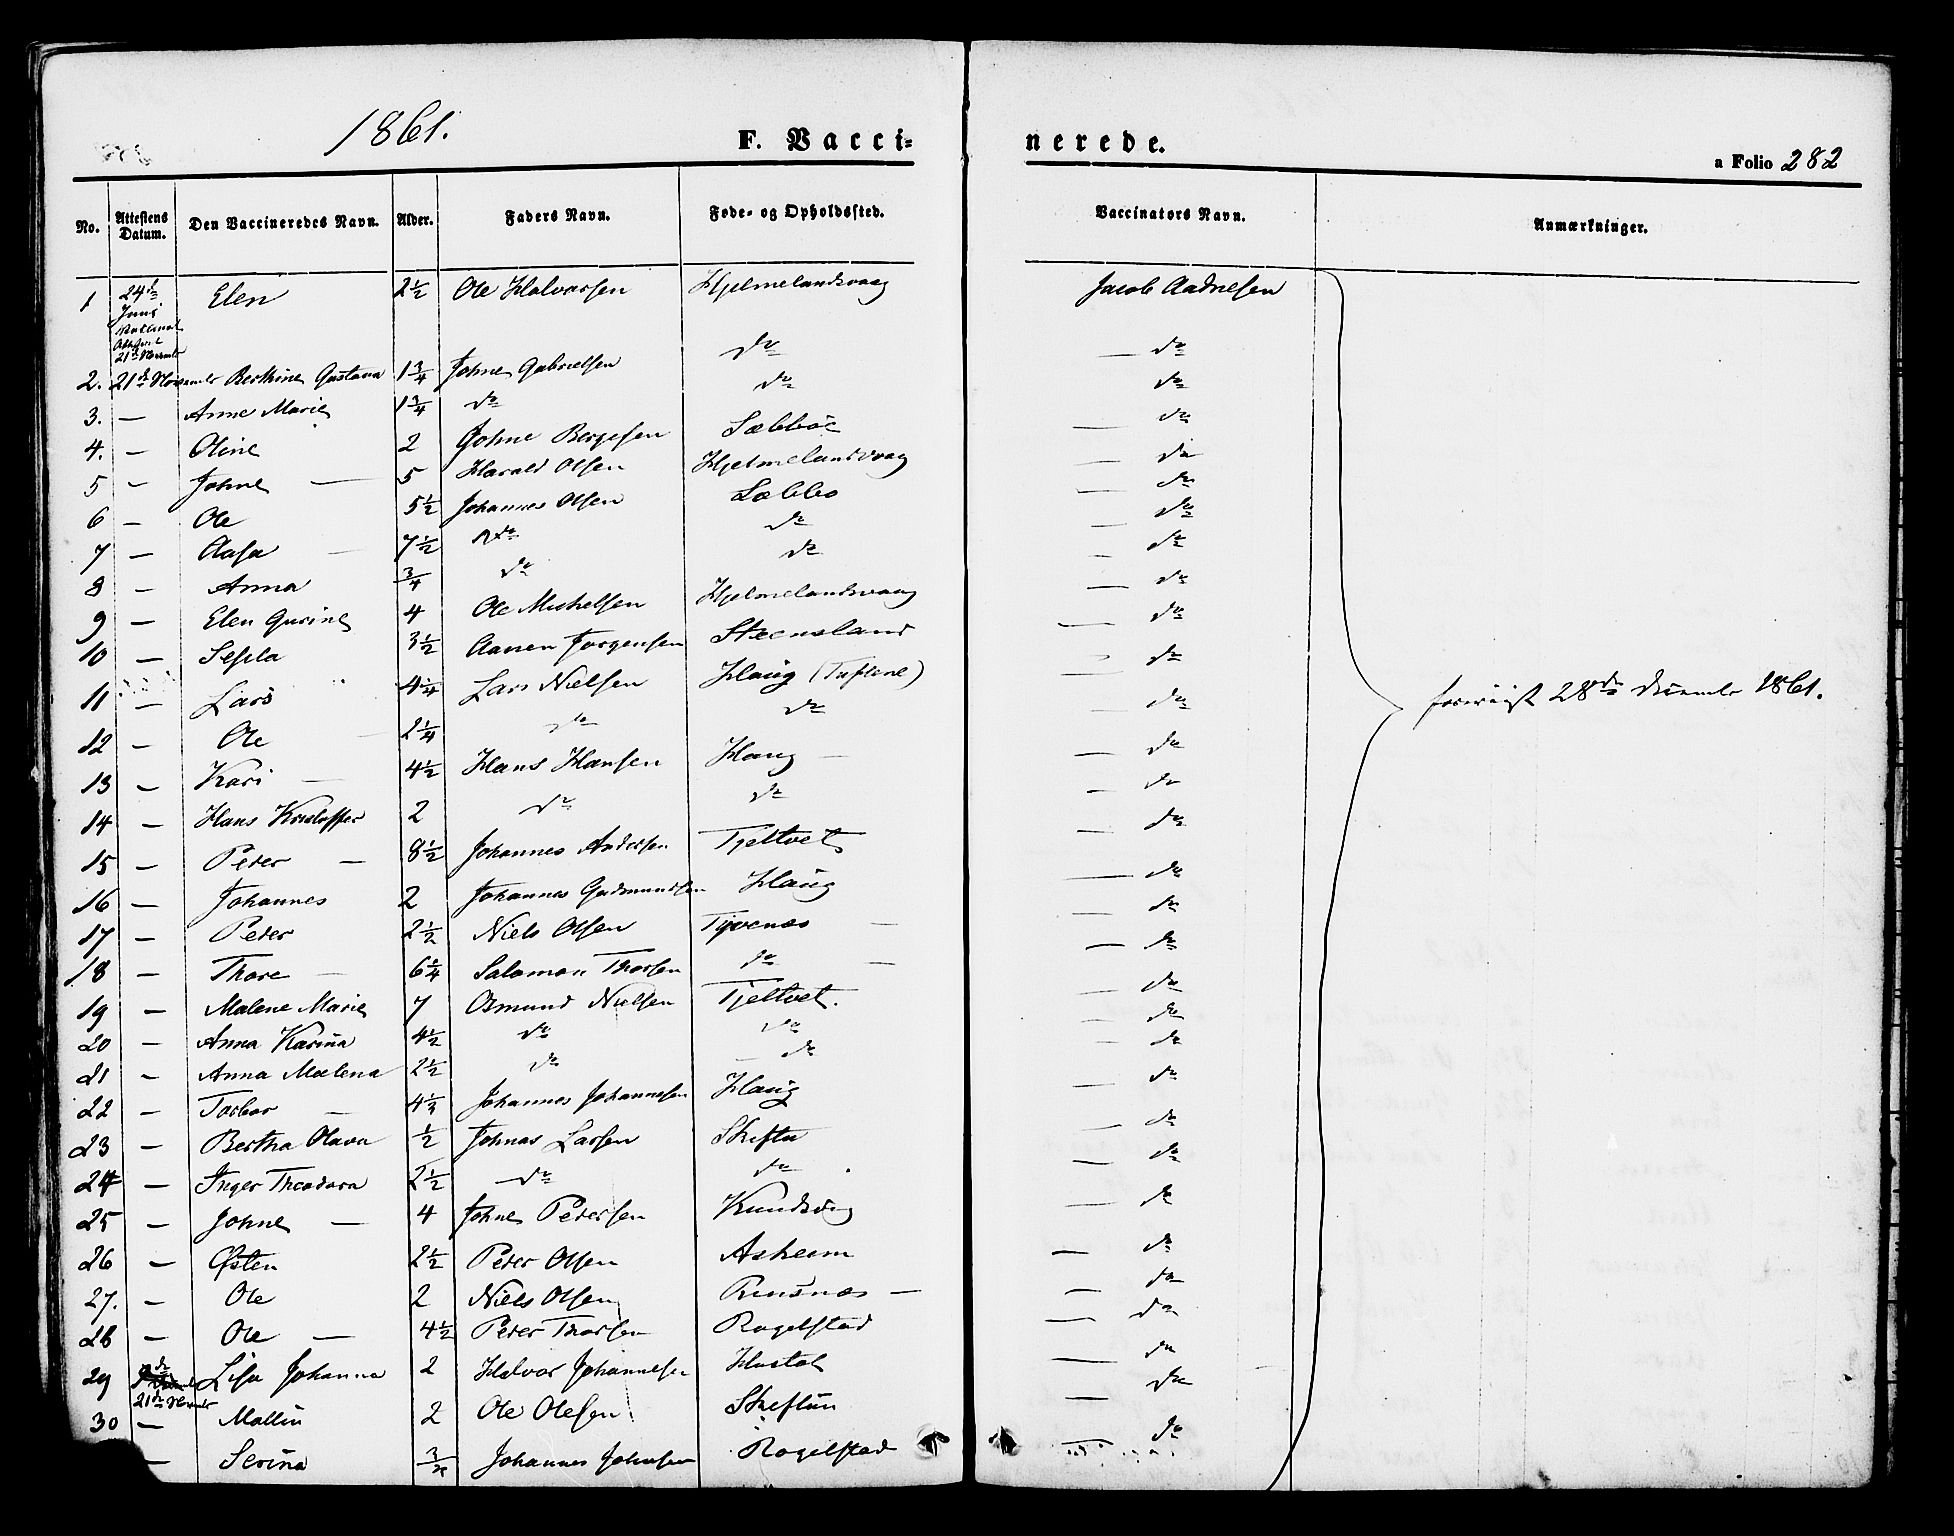 1861.
F. Vacci=
nerede.
a Folio 282
No. Attestens Datum. Den Vaccineredes Navn. Alder. Faders Navn. Føde- og Opholdssted. Vaccinators Navn. Anmærkninger.
1 24de Juni Elen 2½ Ole Halvorsen Hjelmelandsvaag Jacob Aadnesen
21de November
2. 21de November Berthine Gustava 1¾ Johne Gabrielsen do — do
3. — Anne Marie 1¾ do do — do
4. — Oline 2 Gohne Bergesen Sæbbøe — do
5 — Johne — 5 Harald Olsen Hjelmelandsvaag — do
6 — Ole 5½ Johannes Olsen Sæbbø — do
7 — Aasa — 7½ do do — do
8 — Anna ¾ do do — do
9 — Elen Gurine 4 Ole Michelsen Hjelmelandsvaag — do
10 — Sessla 3½ Aanen Jorgensen Steensland — do
11 — Lars 4¼ Lars Nielsen Haug (Tuftene) — do
12 — Ole 2¼ do do — do
13 — Kari — 4½ Hans Hansen Haug — — do
14 — Hans Kristoffer 2 do do — do
15 — Peder — 8½ Johannes Andersen Tjeltvet — do
16 — Johannes 2 Johannes Gudmundsen Haug — do
17 — Peder 2½ Niels Olsen Tyvenæs — — do
18 — Thore — 6¾ Salomon Thorsen do — — do
19 — Malene Marie 7 Osmund Nielsen Tjeltvet. — do
20 — Anna Karina 4½ do do — do
21 — Anna Malena 2½ do do — do
22 — Torbor — 4½ Johannes Johannesen Haug — do
23 — Bertha Olava ½ Johnas Larsen Skiftu — do
24 — Inger Theodora 2½ do do — do
25 — Johne — 4 Johne Pedersen Knudsvig — do
26 — Østen 2½ Peder Olsen Askeim — do
27. — Ole 2 Niels Olsen Runsnæs — — do
28 — Ole — 4½ Peder Thorsen Rogelstad — do
29 21de November Lisa Johanna 2 Halvor Johannesen Hustol — do
30 — Mallin 2 Ole Olesen Skiftun — do
— Serina Johannes Johnsen Rogelstad — do
28de December 1861.